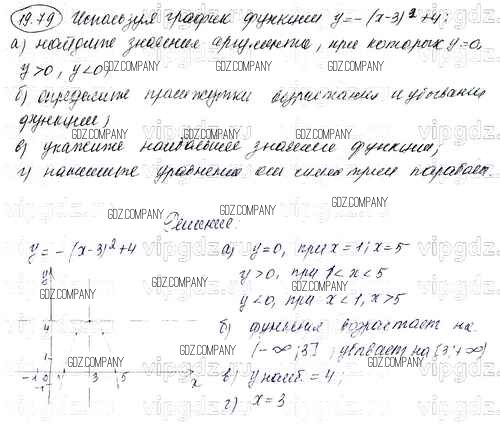 19.79 Используя график функции y=-(x-3)²+4:
а) найдите значения аргумента, при которых y=0,
y>0, y<0;
б) определите промежутки возрастания и убывания
функции;
в) укажите наибольшее значение функции;
г) напишите уравнение оси симметрии параболы.
Решение:
y=-(x-3)²+4
а) y=0, при x=1; x=5
y>0, при 1<x<5
y<0, при x<1, x>5
б) функция возрастает на
(-∞;3], убывает на [3;+∞)
в) y наиб.=4;
г) x=3
y
4
1
-1 0 1 3 5 x
-1
GDZ.COMPANY
vipgdz.com